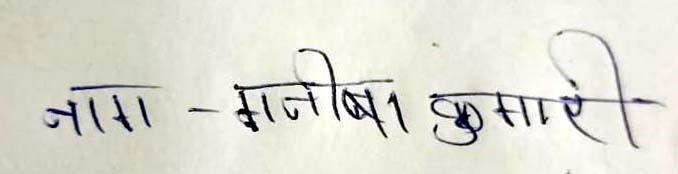 नाम - मनीषा कुमारी